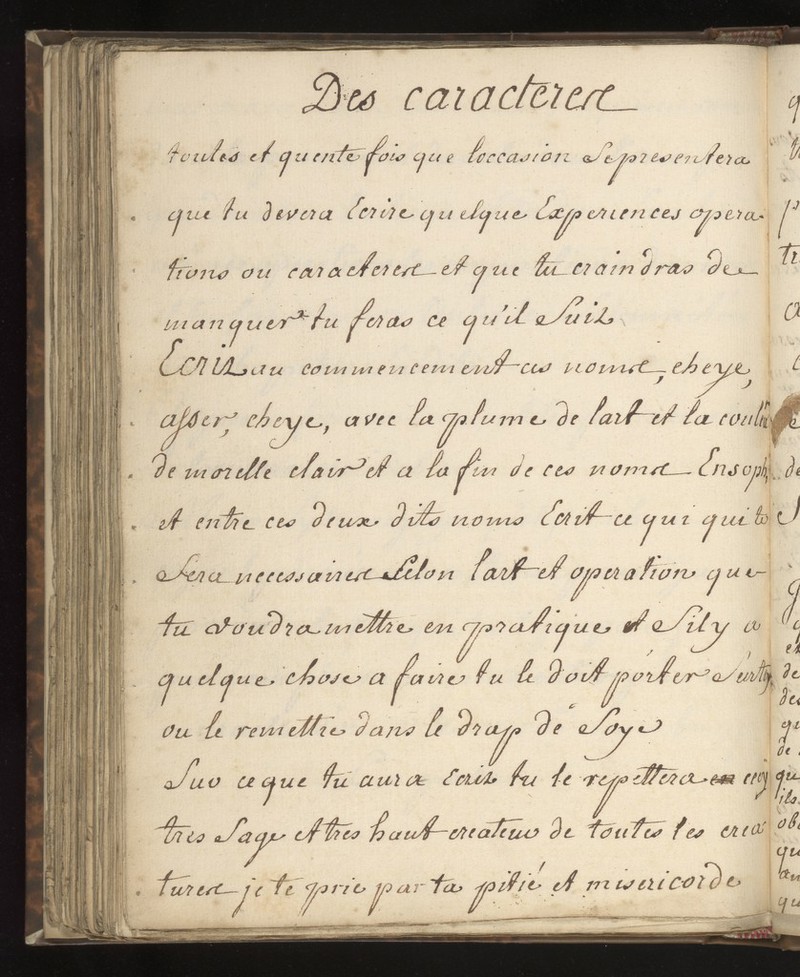 Des caracteres
toutes et quente fois que loccasion Se presentera
que tu devera Ecrire quelque Experiences opera-
tions ou caracteres et que tu craindras de
manquer tu feras ce qu'il Suit
Ecrit au commencement ces noms, eheye,
asser, eheye, avec la plume de lart et la coul
de morelle clair et a la fin de ces noms Ensoph,
et entre ces deux dits noms Ecrit ce qui qui te
Sera necessaires Selon lart et operation que
tu voudra mettre en pratique et Sily a
quelque chose a faire tu le doit porter Sur ty
ou le remettre dans le drap de Soye
Suv ce que tu aura Ecrit tu le repettera cecy
tres Sage et tres haut createur de toutes les crea
tures je te prie par ta pitié et misericorde